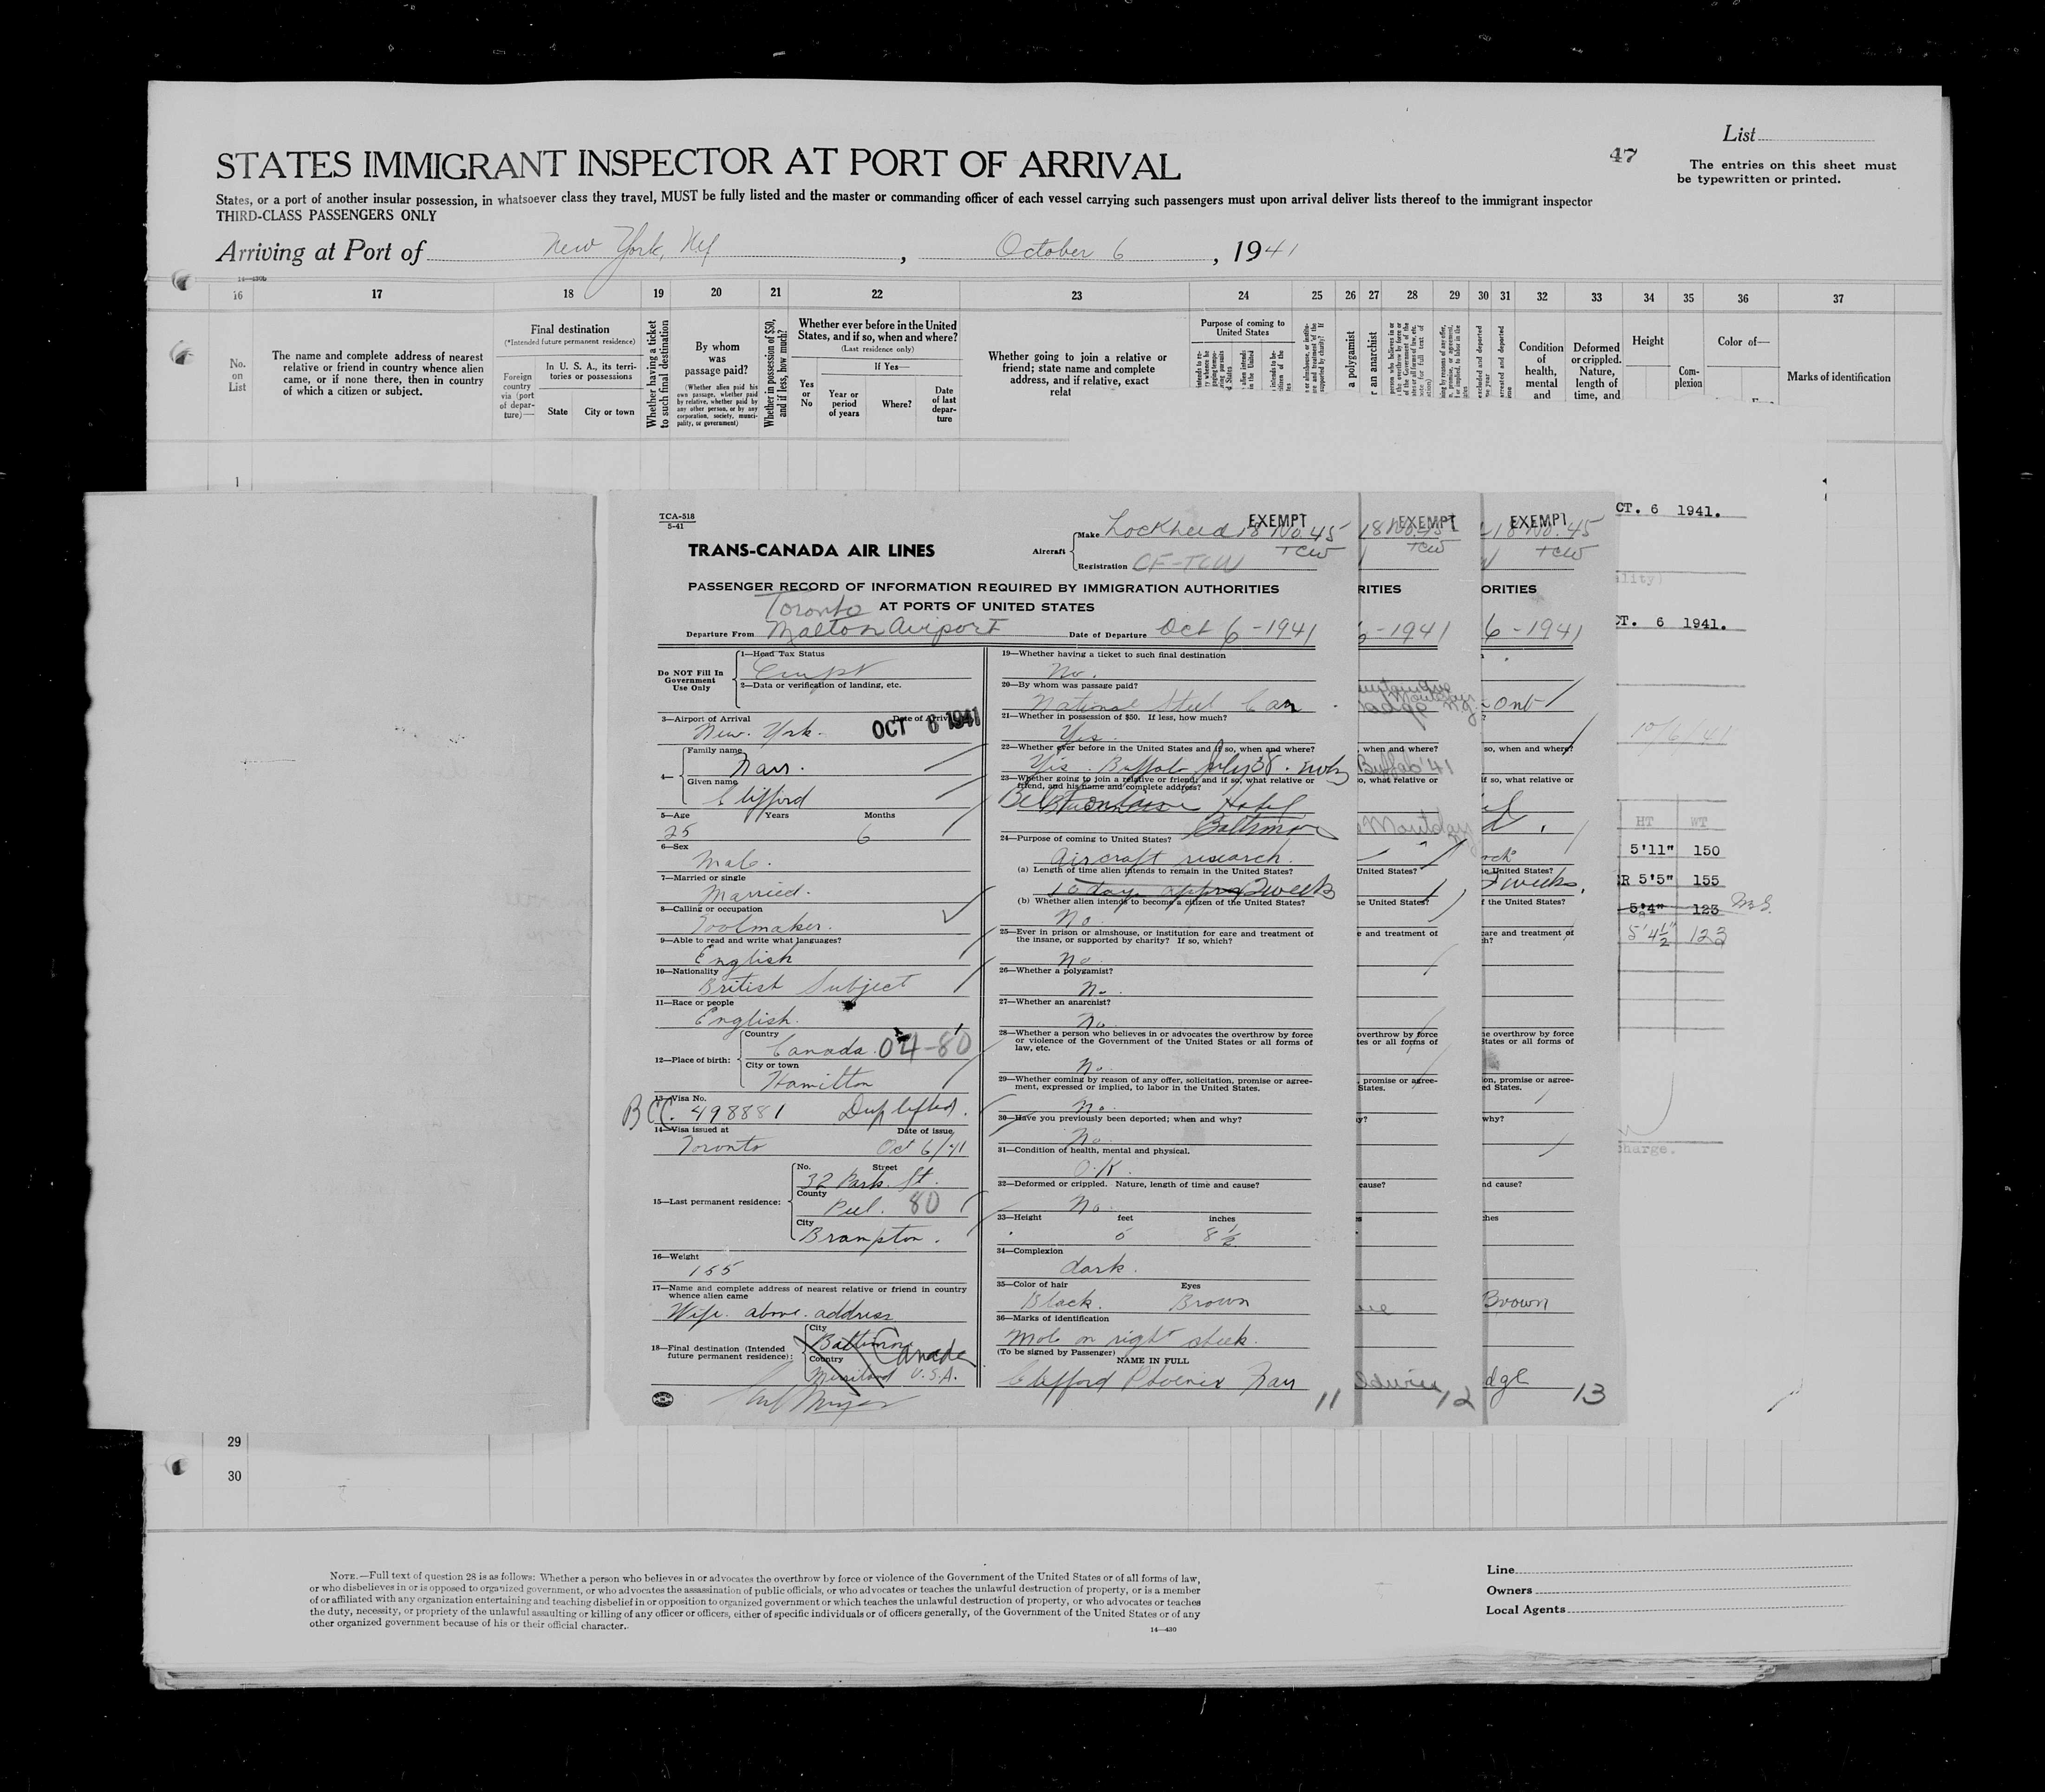 List
47
The entries on this sheet must
be typewritten or printed.
STATES IMMIGRANT INSPECTOR AT PORT OF ARRIVAL
States, or a port of another insular possession, in whatsoever class they travel, MUST be fully listed and the master or commanding officer of each vessel carrying such passengers must upon arrival deliver lists thereof to the immigrant inspector
THIRD-CLASS PASSENGERS ONLY
Arriving at Port of New York, NY, October 6, 1941
14—430b
16 17 18 19 20 21 22 23 24 25 26 27 28 29 30 31 32 33 34 35 36 37
No.
on
List
The name and complete address of nearest
relative or friend in country whence alien
came, or if none there, then in country
of which a citizen or subject.
Final destination
(*Intended future permanent residence)
Foreign
country
via (port
of depar-
ture)—
In U. S. A., its terri-
tories or possessions
State
City or town
Whether having a ticket
to such final destination
By whom
was
passage paid?
(Whether alien paid his
own passage, whether paid
by relative, whether paid by
any other person, or by any
corporation, society, munici-
pality, or government)
Whether in possession of $50,
and if less, how much?
Whether ever before in the United
States, and if so, when and where?
(Last residence only)
If Yes—
Yes
or
No
Year or
period
of years
Where?
Date
of last
depar-
ture
Whether going to join a relative or
friend; state name and complete
address, and if relative, exact
relat
Purpose of coming to
United States
a polygamist
r an anarchist
Condition
of
health,
mental
and
Deformed
or crippled.
Nature,
length of
time, and
Height
Com-
plexion
Color of—
Marks of identification
1
TCA-518
5-41
TRANS-CANADA AIR LINES
Aircraft
Make Lockheed 18 No. 45
EXEMPT
TCW
Registration CF-TCW
PASSENGER RECORD OF INFORMATION REQUIRED BY IMMIGRATION AUTHORITIES
AT PORTS OF UNITED STATES
Toronto
Departure From Malton Airport Date of Departure Oct 6-1941
Do NOT Fill In
Government
Use Only
1—Head Tax Status
2—Data or verification of landing, etc.
3—Airport of Arrival Date of Arrival
New York. OCT 6 1941
4—
Family name
Farr.
Given name
Clifford
5—Age Years Months
25 6
6—Sex
Male.
7—Married or single
Married.
8—Calling or occupation
Toolmaker.
9—Able to read and write what languages?
English
10—Nationality
British Subject
11—Race or people
English.
12—Place of birth:
Country
Canada. 04-80
City or town
Hamilton
13—Visa No.
BCC. 498881 Dup lifted.
14—Visa issued at Date of issue
Toronto Oct 6/41
15—Last permanent residence:
No. Street
32 Park. St.
County
Peel. 80
City
Brampton.
16—Weight
155
17—Name and complete address of nearest relative or friend in country
whence alien came
Wife. above. address
18—Final destination (Intended
future permanent residence):
City
Baltimore
Canada
Country
U.S.A.
19—Whether having a ticket to such final destination
No.
20—By whom was passage paid?
National Steel Car
21—Whether in possession of $50. If less, how much?
Yes.
22—Whether ever before in the United States and if so, when and where?
Yes. Buffalo July 38.
23—Whether going to join a relative or friend; and if so, what relative or
friend, and his name and complete address?
Hotel
Baltimore
24—Purpose of coming to United States?
Aircraft research.
(a) Length of time alien intends to remain in the United States?
10 days approx 2 weeks
(b) Whether alien intends to become a citizen of the United States?
No
25—Ever in prison or almshouse, or institution for care and treatment of
the insane, or supported by charity? If so, which?
No
26—Whether a polygamist?
No.
27—Whether an anarchist?
No.
28—Whether a person who believes in or advocates the overthrow by force
or violence of the Government of the United States or all forms of
law, etc.
No.
29—Whether coming by reason of any offer, solicitation, promise or agree-
ment, expressed or implied, to labor in the United States.
No.
30—Have you previously been deported; when and why?
No
31—Condition of health, mental and physical.
O.K.
32—Deformed or crippled. Nature, length of time and cause?
No.
33—Height feet inches
5 8½
34—Complexion
dark.
35—Color of hair Eyes
Black. Brown
36—Marks of identification
Mole on right cheek.
(To be signed by Passenger)
NAME IN FULL
Clifford Phoenix Farr
11
18 No. 45
EXEMPT
TCW
RITIES
6-1941
when and where?
Buffalo '41
o, what relative or
United States?
he United States?
e and treatment of
overthrow by force
tes or all forms of
promise or agree-
States.
y?
cause?
12
18 No. 45
EXEMPT
TCW
ORITIES
6-1941
Ont
so, when and where?
if so, what relative or
he United States?
2 weeks.
f the United States?
care and treatment of
h?
he overthrow by force
States or all forms of
on, promise or agree-
ed States.
why?
nd cause?
ches
Brown
13
CT. 6 1941.
lity)
CT. 6 1941.
10/6/41
HT WT
5'11" 150
R 5'5" 155
5'4" 123
5'4½" 123
charge.
29
30
NOTE.—Full text of question 28 is as follows: Whether a person who believes in or advocates the overthrow by force or violence of the Government of the United States or of all forms of law,
or who disbelieves in or is opposed to organized government, or who advocates the assassination of public officials, or who advocates or teaches the unlawful destruction of property, or is a member
of or affiliated with any organization entertaining and teaching disbelief in or opposition to organized government or which teaches the unlawful destruction of property, or who advocates or teaches
the duty, necessity, or propriety of the unlawful assaulting or killing of any officer or officers, either of specific individuals or of officers generally, of the Government of the United States or of any
other organized government because of his or their official character.
14—430
Line
Owners
Local Agents